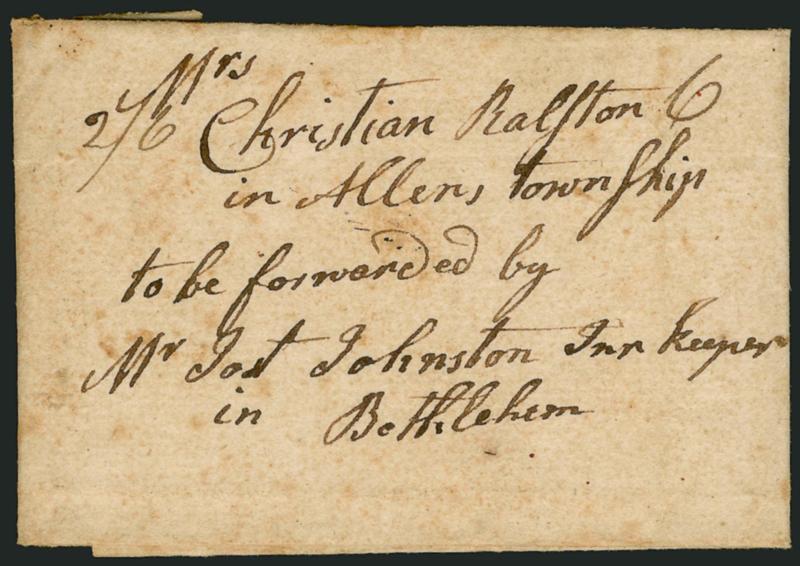 Mrs
2/6 Christian Ralston 6
in Allens township
to be forwarded by
Mr Jost Johnston Inn keeper
in Bethlehem